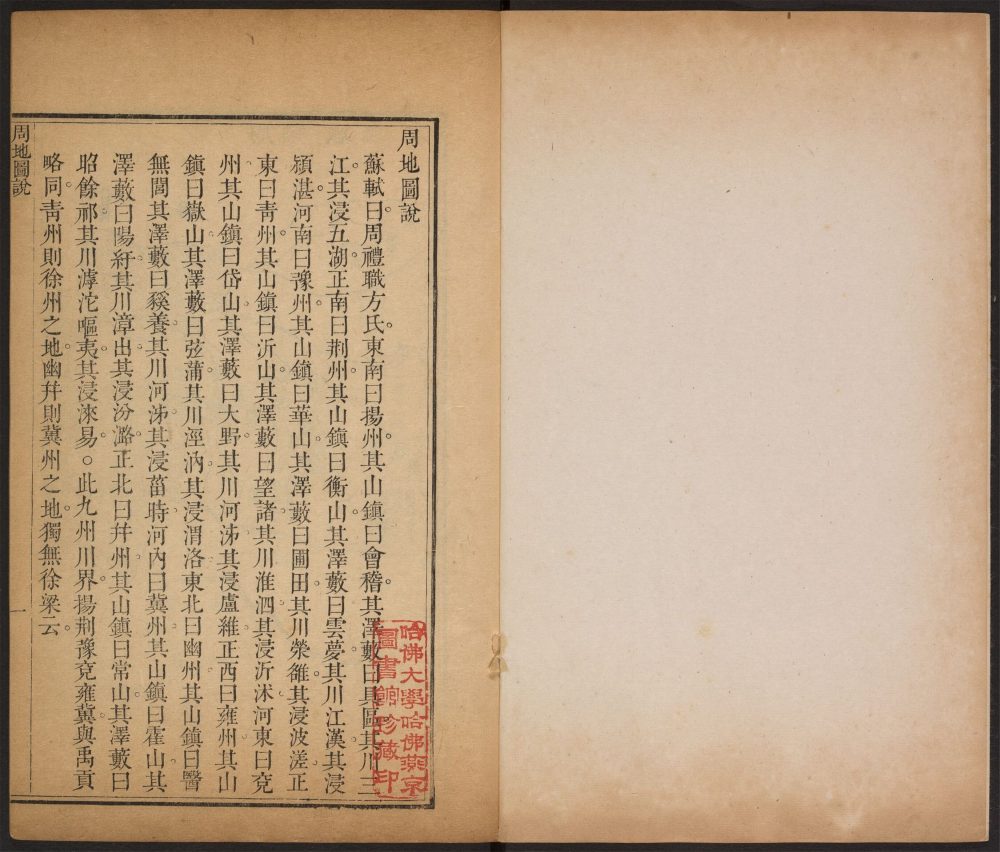 周地圖說
蘇軾曰周禮職方氏東南曰揚州其山鎮曰會稽其澤藪曰具區其川三
江其浸五湖正南曰荆州其山鎮曰衡山其澤藪曰雲夢其川江漢其浸
潁湛河南曰豫州其山鎮曰華山其澤藪曰圃田其川滎雒其浸波溠正
東曰青州其山鎮曰沂山其澤藪曰望諸其川淮泗其浸沂沭河東曰兗
州其山鎮曰岱山其澤藪曰大野其川河泲其浸盧維正西曰雍州其山
鎮曰嶽山其澤藪曰弦蒲其川涇汭其浸渭洛東北曰幽州其山鎮曰醫
無閭其澤藪曰貕養其川河泲其浸菑時河內曰冀州其山鎮曰霍山其
澤藪曰陽紆其川漳出其浸汾潞正北曰幷州其山鎮曰常山其澤藪曰
昭餘祁其川滹沱嘔夷其浸淶易。此九州川界揚荆豫兗雍冀與禹貢
略同青州則徐州之地幽幷則冀州之地獨無徐梁云
周地圖說
一
哈佛大學哈佛燕京
圖書館珍藏印